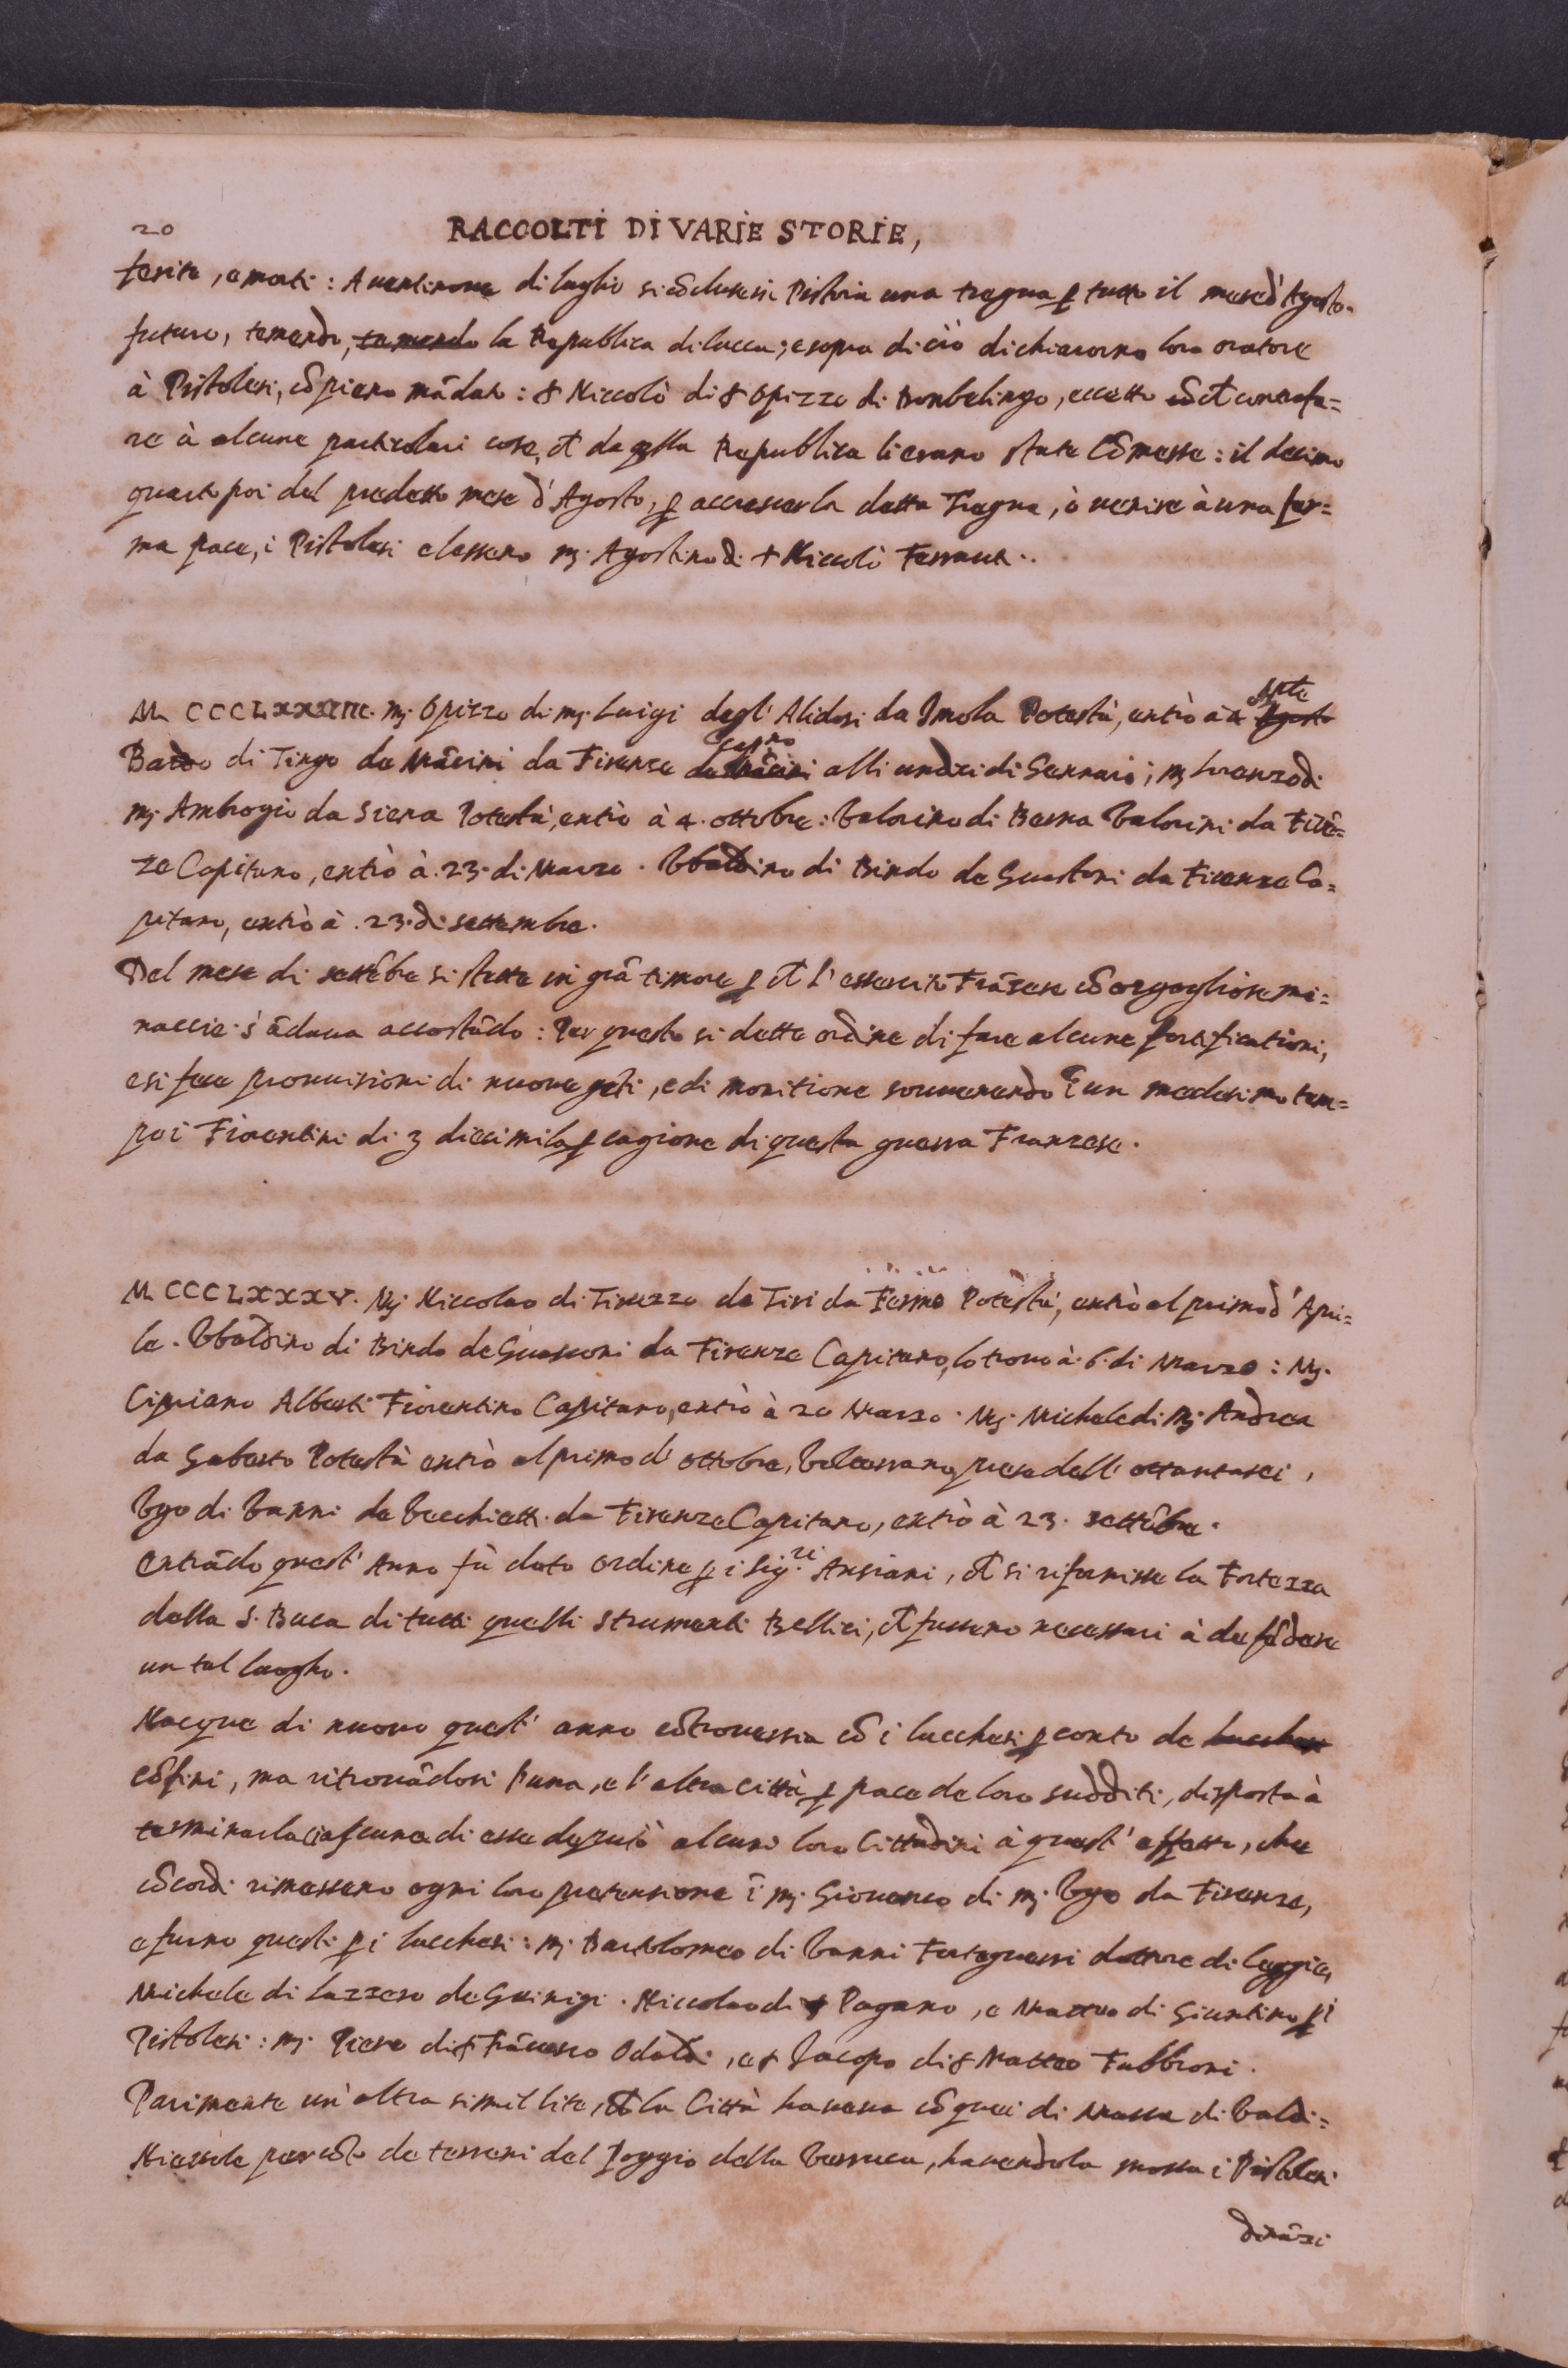 20
RACCOLTI DI VARIE STORIE,
ferite, e morti: A ventinove di luglio si cōcluse si Pistoia una tregua ꝑ tutto il mese d'Agosto
futuro, temendo, temendo la Republica di lucca; e sopra di ciò dichiarorno loro oratore
à Pistolesi, cō pieno mādato: Niccolò di Opizzo di Bonbelingo, eccetto contrafa=
re à alcune particolari cose, da qlla Republica li erano state Cōmesse: il decimo
quarto poi del predetto mese d'Agosto, ꝑ accrescer la detta Tregua, ò venire à una fer=
ma pace, i Pistolesi elessero mʒ. Agostino di Niccolò Ferrant..
mʒ. Opizzo di mʒ. Luigi degl' Alidosi da Imola Potestà, entrò à Agosto
Bardo di Tingo de Mācini da Firenze de Mācini alli undici di Gennaio; mʒ Lorenzo di
mʒ. Ambrogio da Siena Potestà, entrò à 4. ottobre: Valorino di Barna Valorini da Firē=
ze Capitano, entrò à 23. di Marzo. Vbaldino di Bindo de Guastoni da Firenze Ca=
pitano, entrò à 23. di settembre.
Del mese di settēbre si stette in grā timore ꝑ l'essercito Frāzese cō orgogliose mi=
naccie s'ādava accostādo: Per questo si dette ordine di fare alcune fortificationi,
e si fece provvisioni di nuove gēti, e di monitione sovvenendo ī un medesimo tem=
po i Fiorentini di diecimila ꝑ cagione di questa guerra Franzese.
M CCCLXXXV. Mʒ. Niccolao di Tinezzo de Tivi da Fermo Potestà, entrò al primo d'Apri=
le. Vbaldino di Bindo de Guasconi da Firenze Capitano, lo trovo à 6. di Marzo: Mʒ.
Cipriano Alberti Fiorentino Capitano, entrò à 20 Marzo. Mʒ. Michele di Mʒ. Andrea
da Goberto Potestà entrò al primo d'ottobre, dell'ottantasei,
Vgo di Vanni de Vecchietti da Firenze Capitano, entrò à 23. settēbre.
Entrādo quest'Anno fù dato ordine ꝑ i Sig.ri Ansiani, si rifornisse la Fortezza
della S. Buca di tutti quelli strumenti Bellici, fussero necessari à defēdere
un tal luogho.
Nacque di nuovo quest'anno cōtroversia cō i lucchesi ꝑ conto de lucchesi
cōfini, ma ritrovādosi l'una, e l'altra città ꝑ pace de loro sudditi, disposta à
terminarla ciascuna di esse deputò alcuni loro Cittadini à quest'effetto, che
cōcordi rimessero ogni loro pretensione ī mʒ. Giovenco di mʒ. Vgo da Firenze,
e furno questi ꝑ i lucchesi: mʒ. Bartolomeo di Vanni Forteguerri dottore di leggie,
Michele di Lazzero de Guinigi. Niccolao di Pagano, e Matteo di Giuntino ꝑ i
Pistolesi: mʒ. Piero di Frācesco Odaldi, e Iacopo di Matteo Fabbroni.
Parimente un'altra simil lite, la Città haveva cō quei di Massa di Valdi=
Nievole per cōto de terreni del Poggio della Verruca, havendola mossa i Pistolesi
dināzi